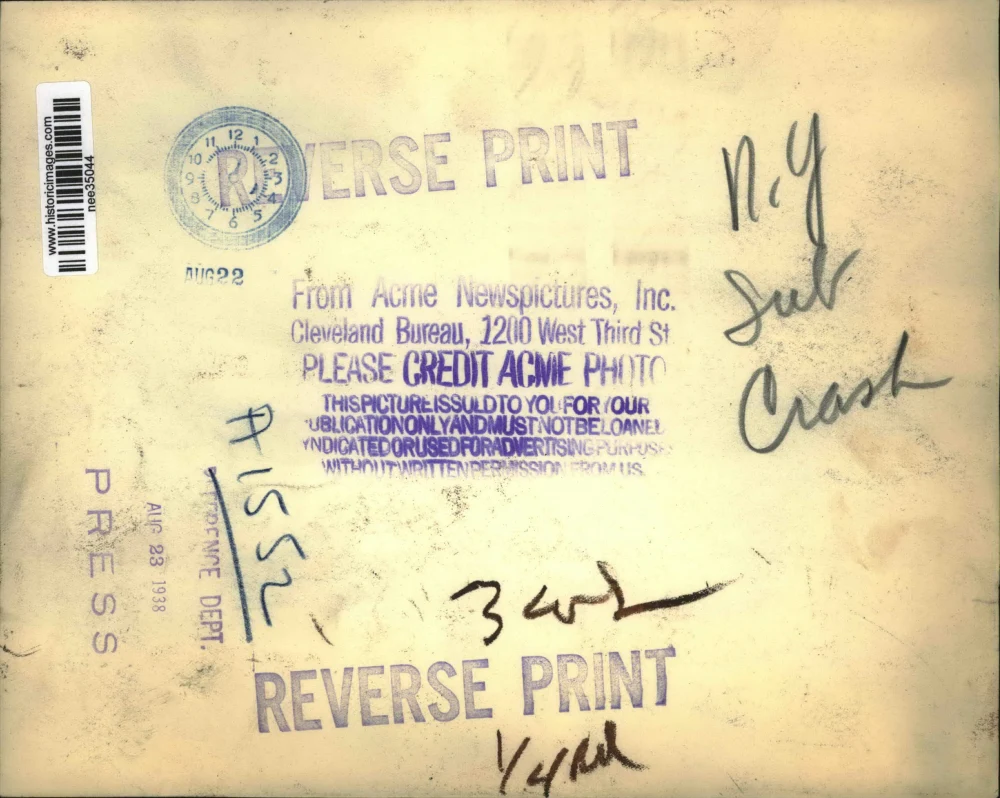 www.historicimages.com
nee35044
REVERSE PRINT
11 12 1
10 2
9 3
8 4
7 6 5
AUG 22
N.Y
Sub
Crash
From Acme Newspictures, Inc.
Cleveland Bureau, 1200 West Third St
PLEASE CREDIT ACME PHOTO
THIS PICTURE IS SOLD TO YOU FOR YOUR
UBLICATION ONLY AND MUST NOT BE LOANE
YNDICATED OR USED FOR ADVERTISING PURPOSE
WITHOUT WRITTEN PERMISSION FROM US.
A1552
ERENCE DEPT.
AUG 23 1938
PRESS
3 col
REVERSE PRINT
1/4